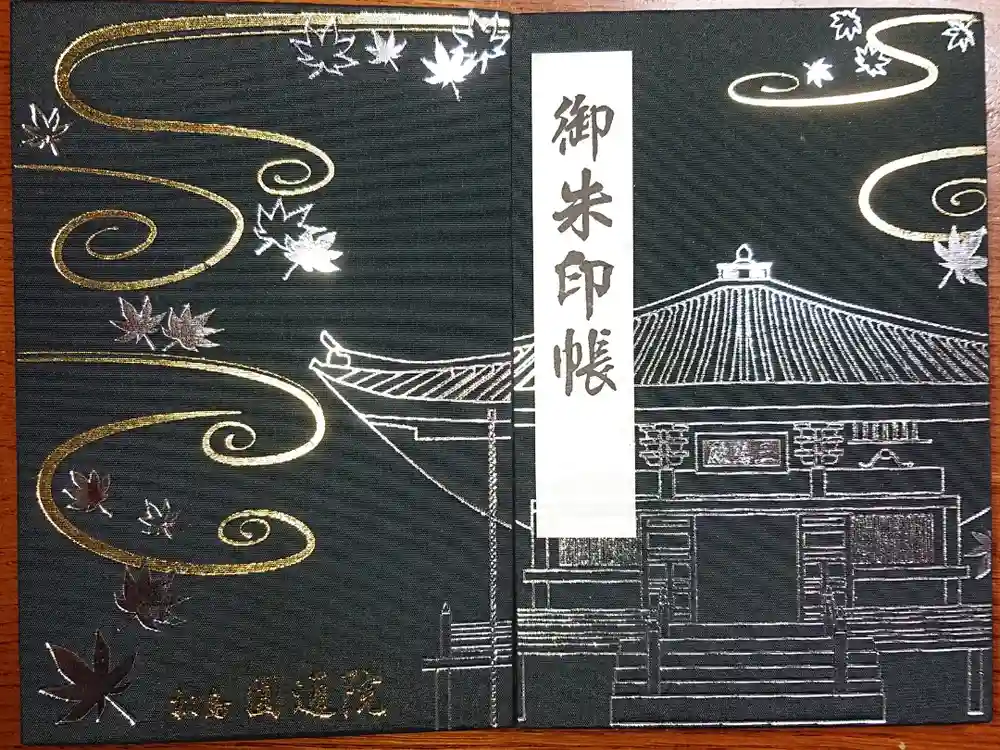 御朱印帳
三慧殿
松島 圓通院